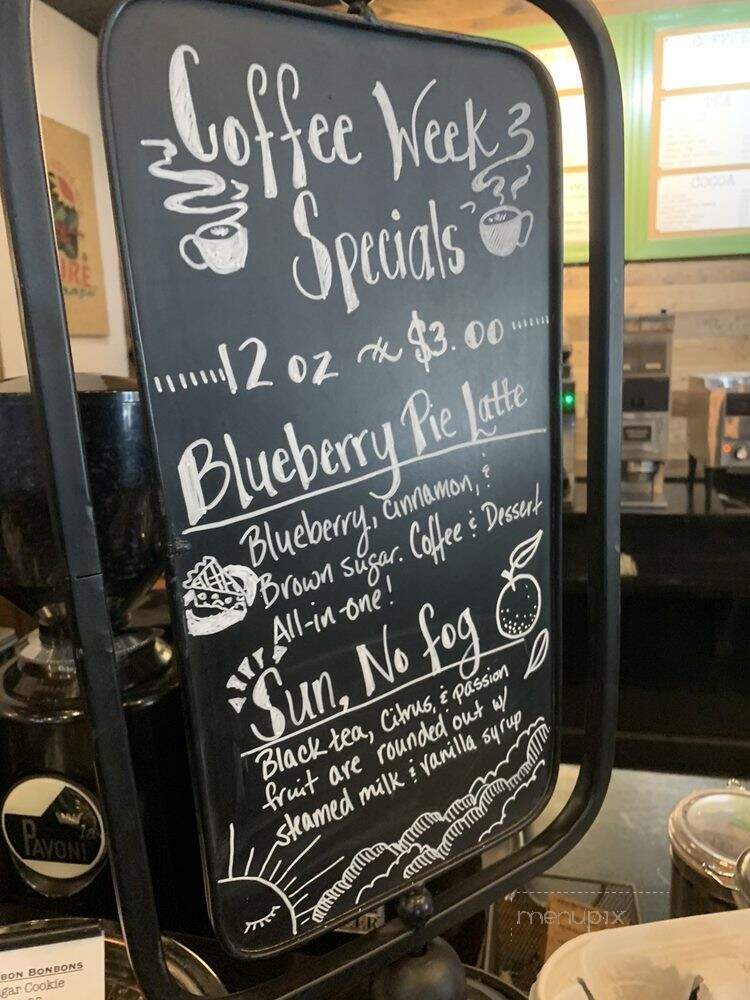 Coffee Week
Specials
12 oz ~ $3.00
Blueberry Pie Latte
Blueberry, cinnamon, &
Brown sugar. Coffee & Dessert
All-in-one!
Sun, No Fog
Black tea, Citrus, & passion
fruit are rounded out w/
steamed milk & vanilla syrup
PAVONI
BON BONBONS
gar Cookie
TEA
COCOA
menupix